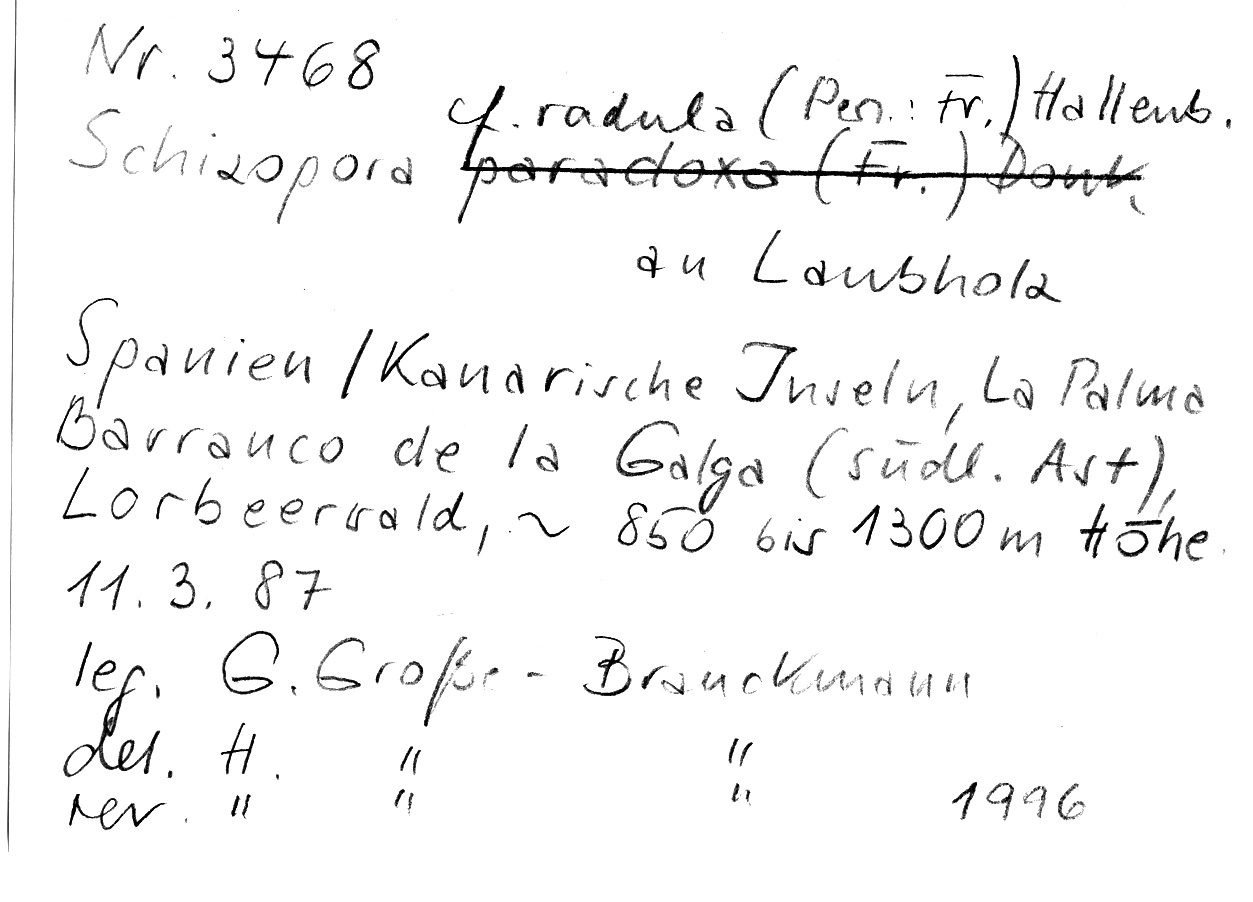 Nr. 3468
cf. radula (Pers.: Fr.) Hallenb.
Schizopora paradoxa (Fr.) Donk
an Laubholz
Spanien / Kanarische Inseln, La Palma
Barranco de la Galga (südl. Ast),
Lorbeerwald, ~ 850 bis 1300 m Höhe.
11. 3. 87
leg. G. Große - Brauckmann
det. H. " "
rev. " " " 1996